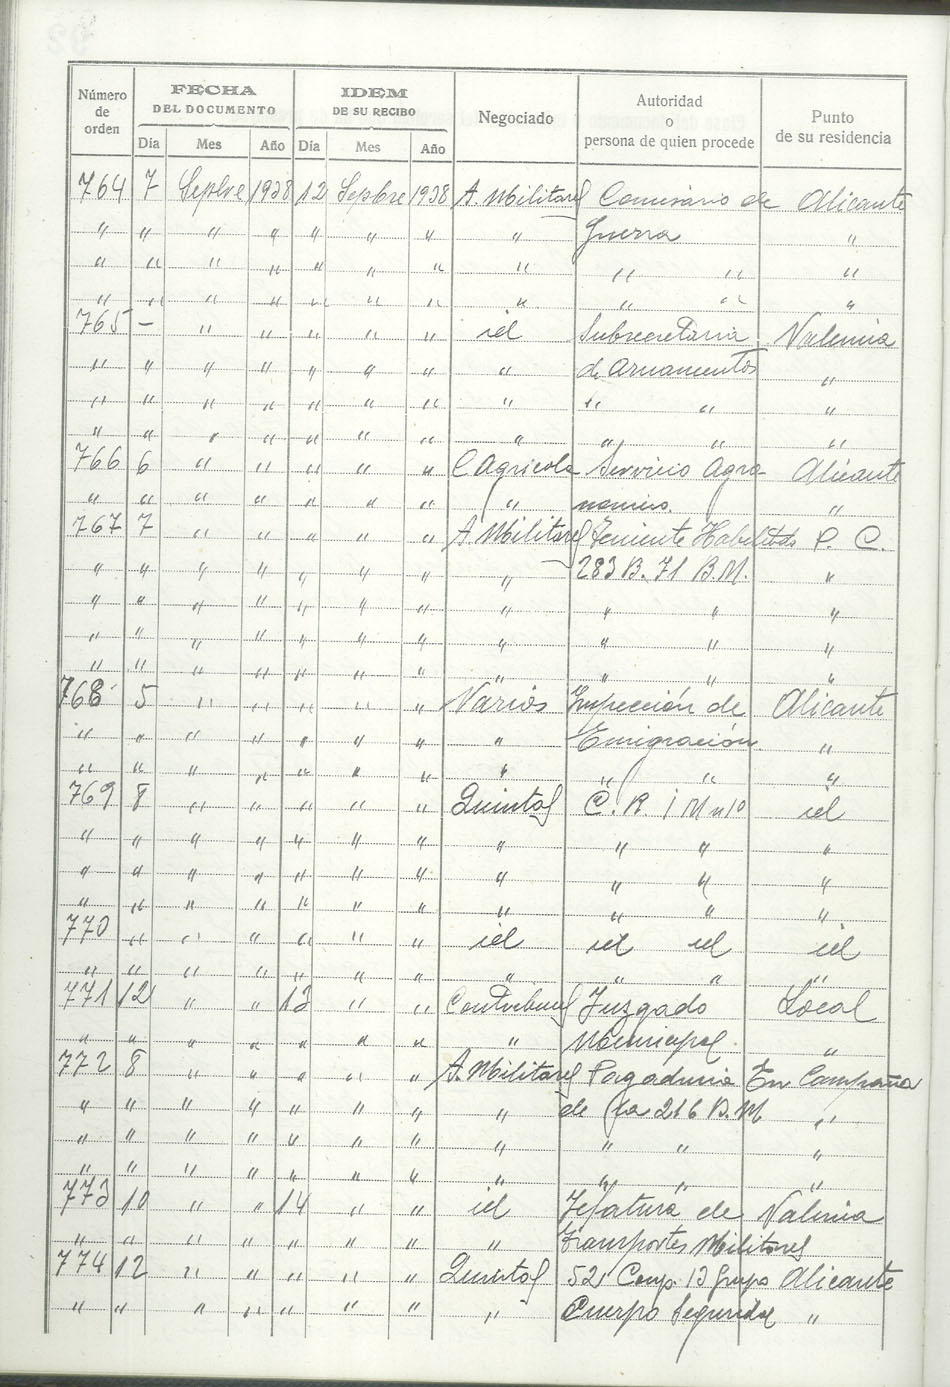 Número de orden FECHA DEL DOCUMENTO IDEM DE SU RECIBO Negociado Autoridad o persona de quien procede Punto de su residencia
Día Mes Año Día Mes Año
764 7 Sepbre 1938 12 Sepbre 1938 A. Militares Comisario de Alicante
" " " " " " " " Guerra "
" " " " " " " " " " "
" " " " " " " " " " "
765 - " " " " " id Subsecretaria Valencia
" " " " " " " " de Armamentos "
" " " " " " " " " " "
" " " " " " " " " " "
766 6 " " " " " C Agricola Servicio Agro- Alicante
" " " " " " " " nomico. "
767 7 " " " " " A. Militares Teniente Habilitado P. C.
" " " " " " " " 283 B. 71 B.M. "
" " " " " " " " " " "
" " " " " " " " " " "
" " " " " " " " " " "
768 5 " " " " " Varios Inspección de Alicante
" " " " " " " " Emigración "
" " " " " " " " " " "
769 8 " " " " " Quintas C. R. I M nº 10 id
" " " " " " " " " " "
" " " " " " " " " " "
" " " " " " " " " " "
770 " " " " " " id id id id
" " " " " " " " " " "
771 12 " " 13 " " Juzgado Local
" " " " " " " " Municipal. "
772 8 " " " " " A. Militares Pagaduria En Campaña
" " " " " " " " de la 216 B. M "
" " " " " " " " " " "
" " " " " " " " " " "
773 10 " " 14 " " id Jefatura de Valencia
" " " " " " " " Transportes Militares
774 12 " " " " " Quintas 521 Comp. 13 Grupo Alicante
" " " " " " " " Cuerpo Seguridad "